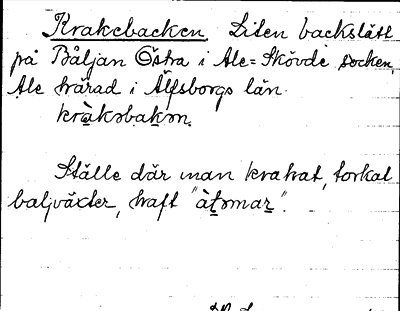 Krakebacken. Liten backslätt
på Båljan Östra i Ale-Skövde socken,
Ale härad i Älfsborgs län.
kràkəbakən.
Ställe där man krakat, torkat
baljväxter, haft "àʈəmaʀ".